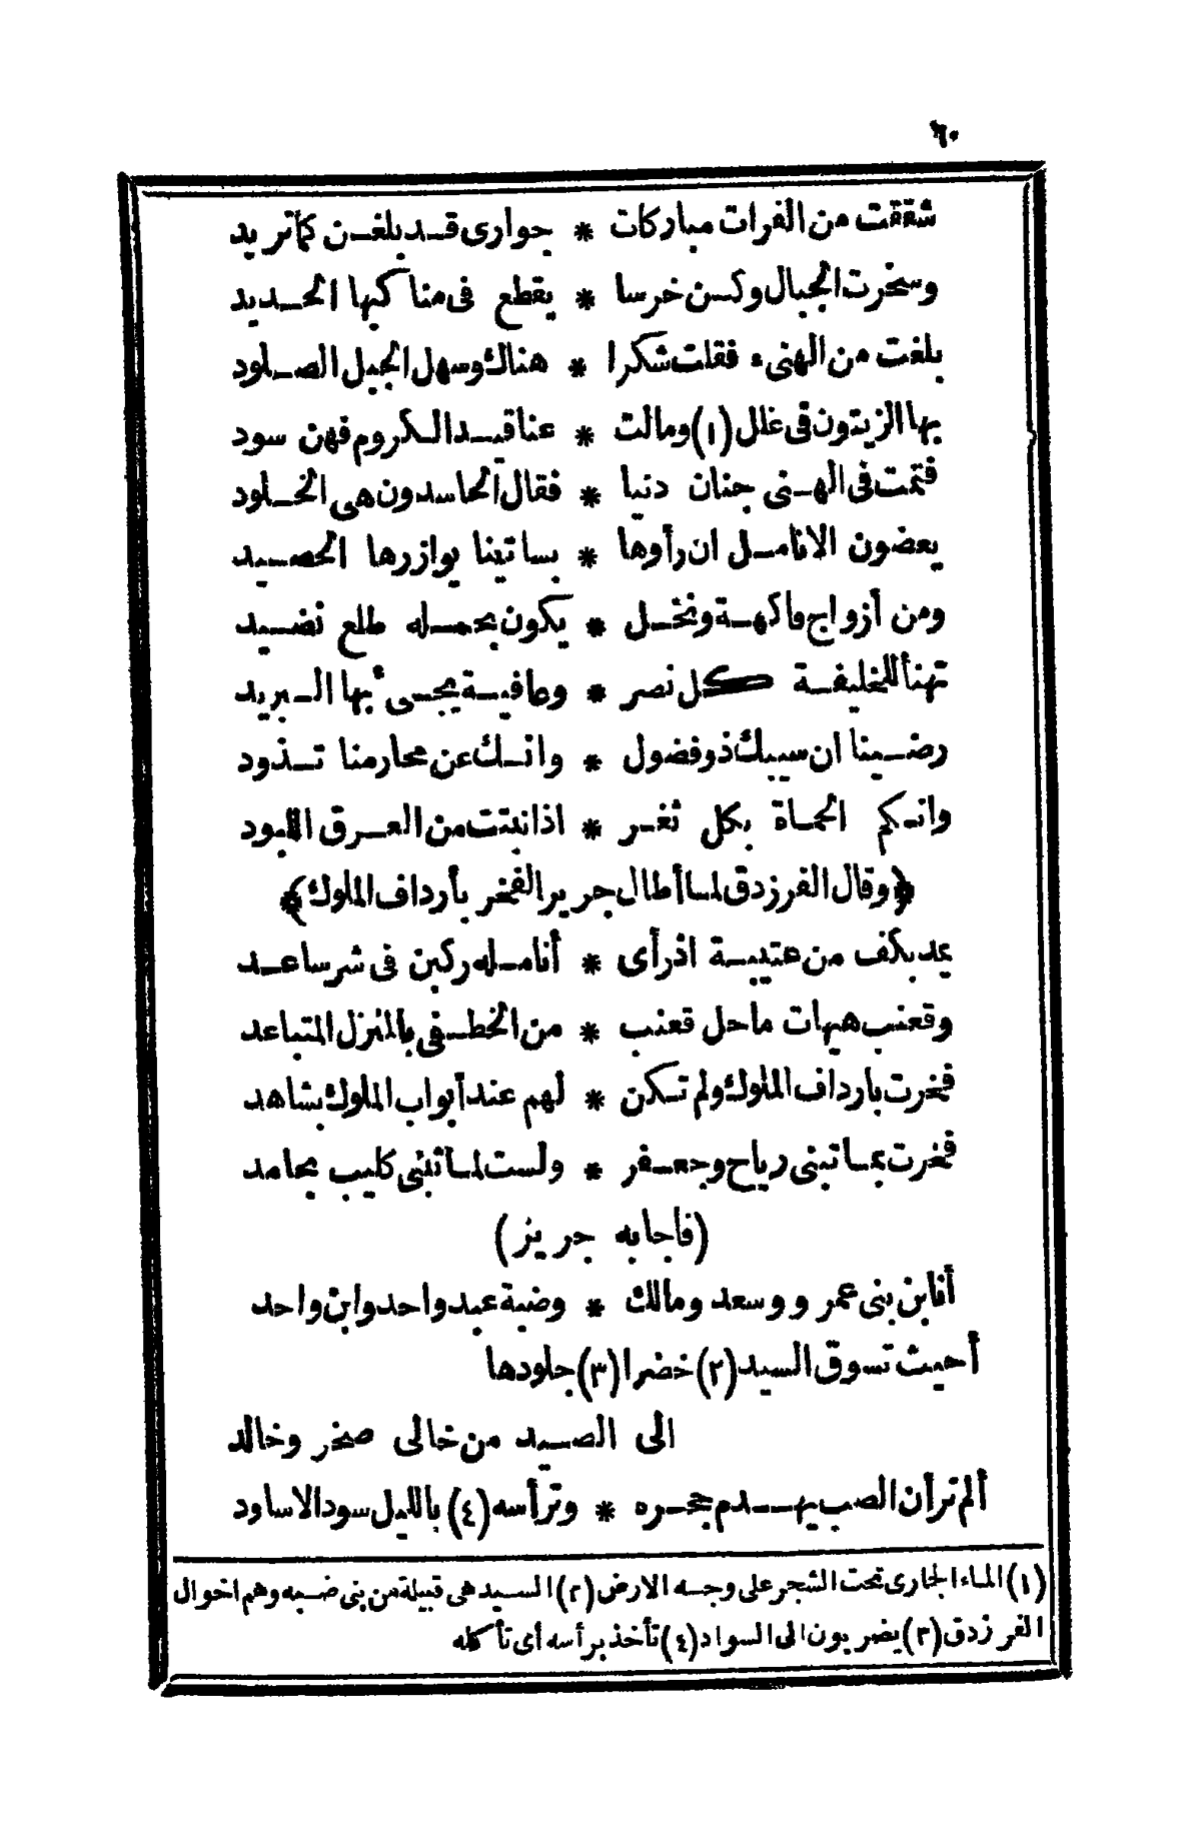 ٦٠
شققت من الفرات مباركات * جوارى قد بلغن كما تريد
وسخرت الجبال وكن خرسا * يقطع فى مناكبها الحديد
بلغت من الهنىء فقلت شكرا * هناك وسهل الجبل الصلود
بها الزيتون فى غلل (١) ومالت * عناقيد الكروم فهن سود
فتمت فى الهنى جنان دنيا * فقال الحاسدون هى الخلود
يعضون الانامل ان رأوها * بساتينا يوازرها الحصيد
ومن أزواج فاكهة ونخل * يكون بحمله طلع نضيد
تهنأ للخليفة كل نصر * وعافية يجىء بها البريد
رضينا ان سيبك ذو فضول * وانك عن محارمنا تذود
وانكم الحماة بكل ثغر * اذا نبتت من العرق اللبود
﴿وقال الفرزدق لما أطال جرير الفخر بأرداف الملوك﴾
يمد بكف من عتيبة اذ رأى * أنامله ركبن فى شر ساعد
وقعنب هيهات ما حل قعنب * من الخطفى بالمنزل المتباعد
فخرت بارداف الملوك ولم تكن * لهم عند أبواب الملوك بشاهد
فخرت بما تبنى رياح وجعفر * ولست لما تبنى كليب بحامد
(فاجابه جرير)
أنا ابن بنى عمرو وسعد ومالك * وضبة عبد واحد وابن واحد
أحيث تسوق السيد (٢) خضرا (٣) جلودها
الى الصيد من خالى صخر وخالد
ألم تر أن الضب يهدم جحره * وترأسه (٤) بالليل سود الاساود
(١) الماء الجارى تحت الشجر على وجه الارض (٢) السيد هى قبيلة من بنى ضبه وهم اخوال
الفرزدق (٣) يضربون الى السواد (٤) تأخذ برأسه أى تأكله